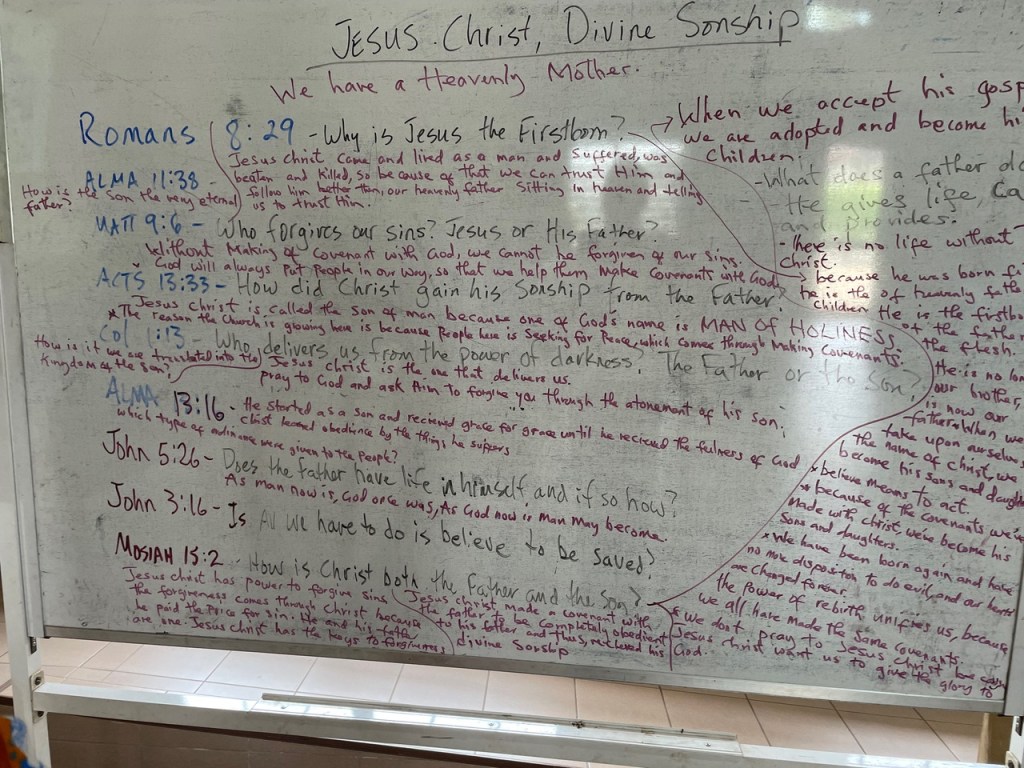 JESUS Christ, Divine Sonship
We have a Heavenly Mother.
Romans 8:29 - Why is Jesus the Firstborn?
Jesus christ came and lived as a man and suffered, was
beaten and killed, so because of that we can trust Him and
follow him better than, our heavenly father sitting in heaven and telling
us to trust Him.
ALMA 11:38 -
How is the son the very eternal
father?
MATT 9:6 - Who forgives our sins? Jesus or His Father?
Without Making of covenant with God, we cannot be forgiven of our sins.
God will always put people in our way, so that we help them make Covenants with God
ACTS 13:33 - How did Christ gain his Sonship from the Father?
Jesus christ is called the son of man because one of God's name is MAN OF HOLINESS
* The reason the Church is growing here is because people here is seeking for Peace, which comes through Making Covenants.
Col 1:13 - Who delivers us from the power of darkness? The Father or the Son?
How is it we are translated into the
Kingdom of the Son?
Jesus christ is the one that delivers us.
pray to God and ask Him to forgive you through the atonement of his son.
ALMA 13:16 - He started as a son and recieved grace for grace until he recieved the fulness of God
christ learned obedience by the things he suffers
which type of were given to the people?
John 5:26 - Does the Father have life in himself and if so how?
As man now is, God once was, As God now is man May become.
John 3:16 - Is All we have to do is believe to be saved?
MOSIAH 15:2 - How is Christ both the Father and the Son?
Jesus christ has power to forgive sins
the forgiveness comes through Christ because
he paid the price for sin. He and his father
are one. Jesus christ has the keys to forgiveness
Jesus Christ made a covenant with
the father, to be completely obedient
to his father and thus, recieved his
divine sonship
When we accept his
we are adopted and become
Children.
- What does a father
- He gives life,
and provides.
- there is no life without
Christ.
because he was born
he is the of heavenly
children He is the
of the father
the flesh.
He is no
our brother,
is now our
father. When we
take upon
the name of Christ, we
become his sons and
* believe means to act.
* because of the covenants
Made with christ, we've become his
sons and daughters.
* We have been born again and have
no more disposition to do evil, and our hearts
are changed forever.
the power of rebirth, unifies us, because
we all have made the same covenants.
* We don't pray to Jesus christ
God. Jesus Christ want us to give the glory to